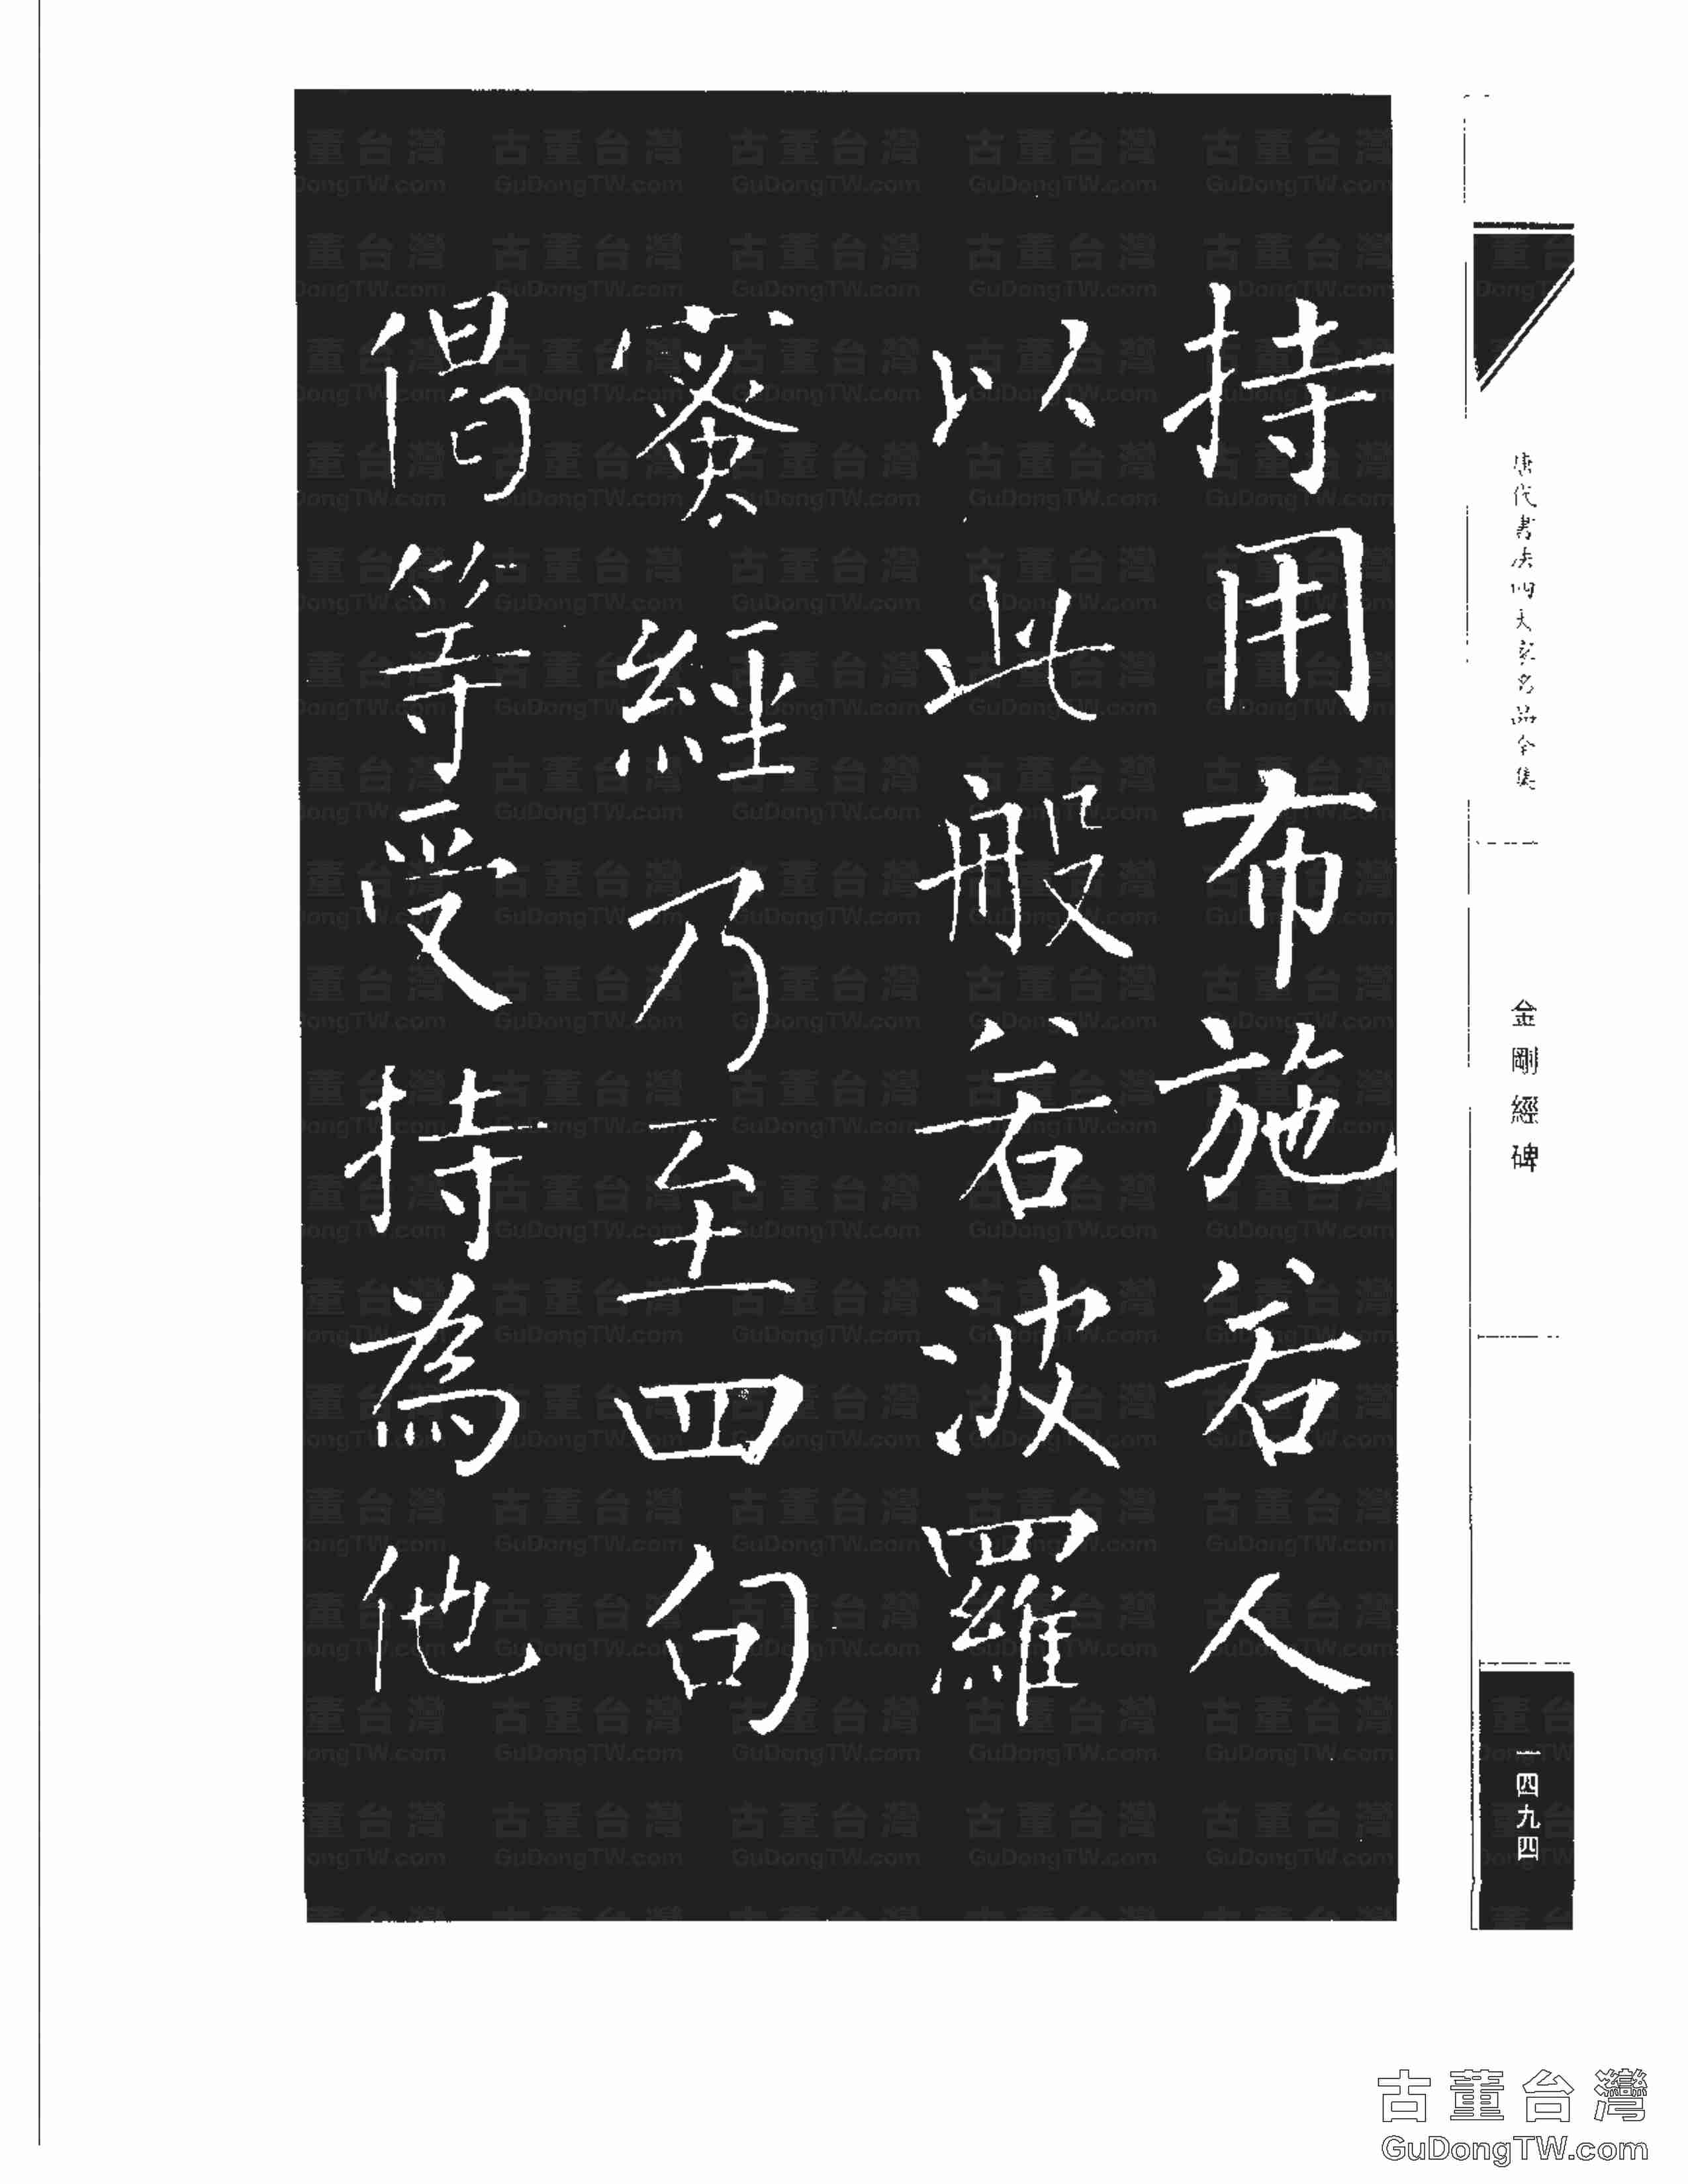 持用布施若人
以此般若波羅
蜜經乃至四句
偈等受持為他
唐代書法四大家名品全集
金剛經碑
一四九四
古董台灣
GuDongTW.com